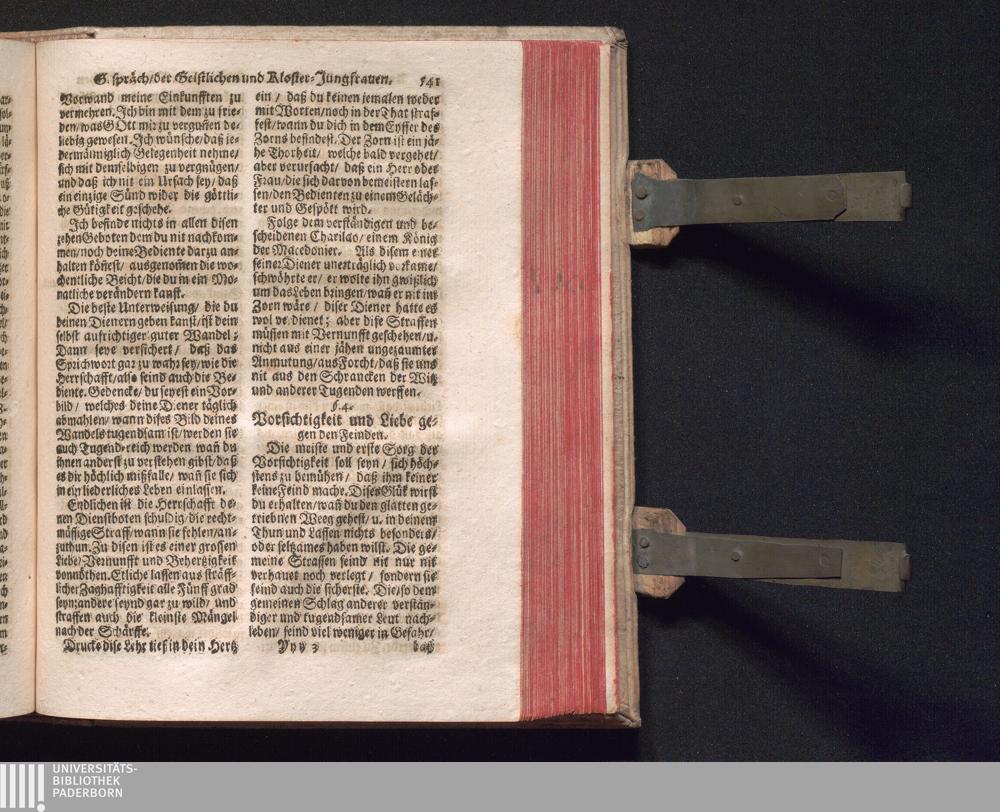 G. spräch/der Geistlichen und Kloster-Jungfrauen. 541
Vorwand meine Einkunfften zu
vermehren. Ich bin mit dem zu frie-
den/was GOtt mir zu vergunen be-
liebig gewesen. Ich wünsche/daß je-
dermänniglich Gelegenheit nehme/
sich mit demselbigen zu vergnügen/
und daß ich nit ein Ursach sey/daß
ein einzige Sünd wider die göttli-
che Gütigkeit geschehe.
Ich befinde nichts in allen disen
zehen Geboten dem du nit nachkom-
men/noch deine Bediente darzu an-
halten könest/ ausgenomen die wo-
chentliche Beicht/die du in ein Mo-
natliche verändern kanst.
Die beste Unterweisung/ die du
deinen Dienern geben kanst/ist dein
selbst aufrichtiger guter Wandel:
Dann seye versichert/ daß das
Sprichwort gar zu wahr sey/wie die
Herrschafft/also seind auch die Be-
diente. Gedencke/du seyest ein Vor-
bild/ welches deine Diener täglich
abmahlen/wann dises Bild deines
Wandels tugendsam ist/werden sie
auch Tugend-reich werden wan du
ihnen anderst zu verstehen gibst/daß
es dir höchlich mißfalle/wan sie sich
in ein liederliches Leben einlassen.
Endlichen ist die Herrschafft de-
nen Dienstboten schuldig/die recht-
mässige Straff/wann sie fehlen/an-
zuthun. Zu disen ist es einer grossen
Liebe/Vernunfft und Behertzigkeit
vonnöthen. Etliche lassen aus sträff-
licher Zaghafftigkeit alle Fünff grad
seyn; andere seynd gar zu wild/ und
straffen auch die kleinste Mängel
nach der Schärffe.
Drucke dise Lehr tief in dein Hertz
ein/ daß du keinen jemalen weder
mit Worten/noch in der That straf-
fest/wann du dich in dem Eyffer des
Zorns befindest. Der Zorn ist ein jä-
he Thorheit/ welche bald vergehet/
aber verursacht/ daß ein Herr oder
Frau/die sich darvon bemeistern las-
sen/den Bedienten zu einem Geläch-
ter und Gespött wird.
Folge dem verständigen und be-
scheidenen Charilao/einem König
der Macedonier. Als disem einer
seiner Diener unerträglich vorkame/
schwöhrte er/ er wolte ihn gwißlich
um das Leben bringen/wañ er nit im
Zorn wäre/ diser Diener hatte es
wol verdienet; aber dise Straffen
müssen mit Vernunfft geschehen/u.
nicht aus einer jähen ungezaumter
Anmutung/aus Forcht/daß sie uns
nit aus den Schrancken der Witz
und anderer Tugenden werffen.
§. 4.
Vorsichtigkeit und Liebe ge-
gen den Feinden.
Die meiste und erste Sorg der
Vorsichtigkeit soll seyn/ sich höch-
stens zu bemühen/ daß ihm keiner
keine Feind mache. Dises Glük wirst
du erhalten/wañ du den glatten ge-
triebnen Weeg gehest/ u. in deinem
Thun und Lassen nichts besonders/
oder seltzames haben wilst. Die ge-
meine Strassen seind nit nur nit
verhauet noch verlegt/ sondern sie
seind auch die sicherste. Die/so dem
gemeinen Schlag anderer verstän-
diger und tugendsamer Leut nach-
leben/ seind viel weniger in Gefahr/
Yyy 3 daß
UNIVERSITÄTS-
BIBLIOTHEK
PADERBORN